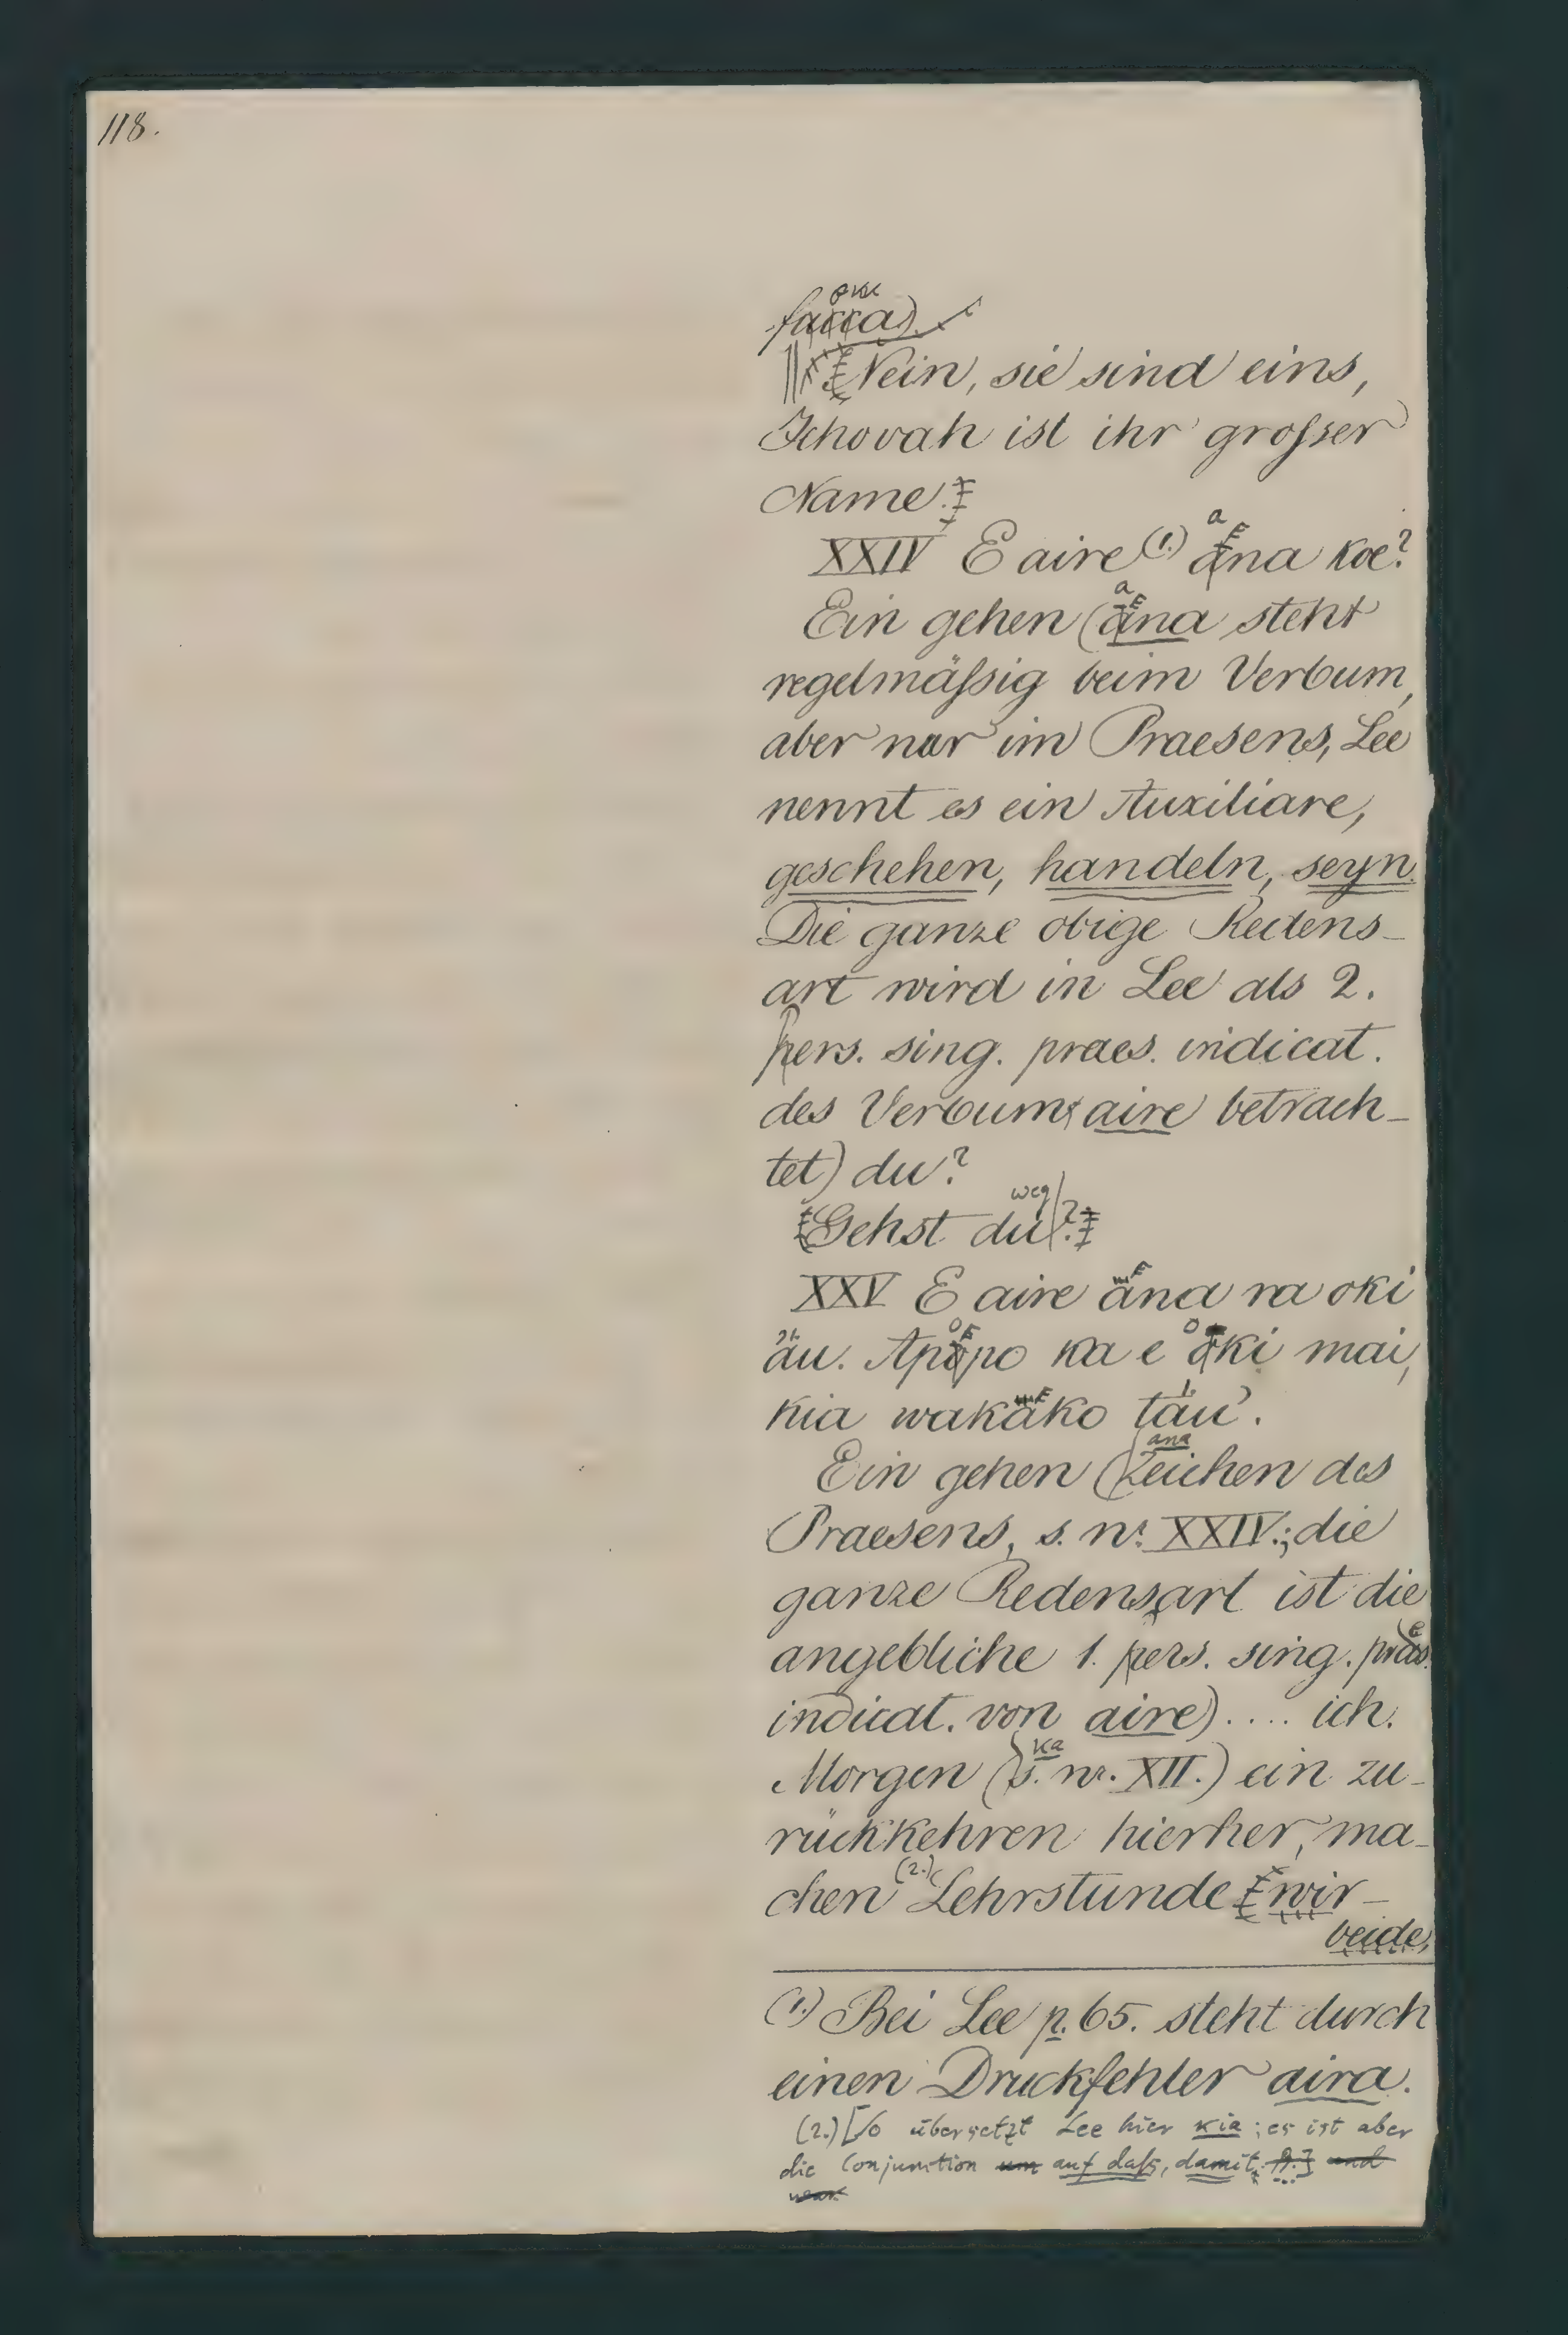 118.
Nein, sie sind eins,
Jehovah ist ihr grofser
Name.
XXIV E aire (1.) ana koe?
Ein gehen (ana steht
regelmäfsig beim Verbum,
aber nur im Praesens, Lee
nennt es ein Auxiliare,
geschehen, handeln, seyn.
Die ganze obige Redens-
art wird in Lee als 2.
pers. sing. praes. indicat.
des Verbums aire betrach-
tet) du?
weg
Gehst du?
XXV E aire ána ra oki
áu. Apopo ka e oki mai,
kia wakáko táu.
ana
Ein gehen (Zeichen des
Praesens, s. nr. XXIV.; die
ganze Redensart ist die
angebliche 1. pers. sing. praes.
indicat. von aire) .... ich.
ka
Morgen (s. nr. XII.) ein zu-
rückkehren hierher, ma-
chen (2.) Lehrstunde wir-
beide,
(1.) Bei Lee p. 65. steht durch
einen Druckfehler aira.
(2.) [So übersetzt Lee hier kia; es ist aber
die Conjunction um auf dafs, damit. B.] und